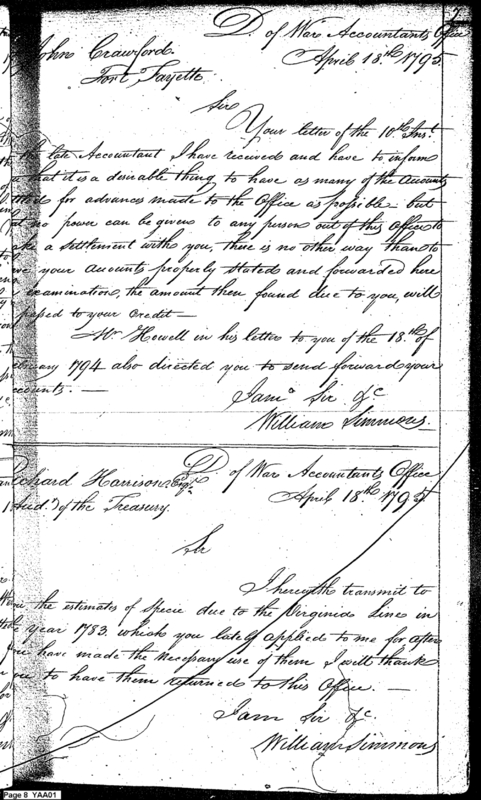 7
D. of War Accountants Office
John Crawford
April 18th 1795
Fort Fayette
Sir
Your letter of the 10th Inst.
the late Accountant I have received and have to inform
that it is a desirable thing to have as many of the Accounts
for advances made to the Office as possible - but
no power can be given to any person out of this Office to
a settlement with you, there is no other way than to
your accounts properly stated and forwarded here
examination, the amount then found due to you, will
passed to your Credit —
Mr Howell in his letter to you of the 18th of
1794 also directed you to send forward your
—
I am Sir &c
William Simmons.
D. of War Accountants Office
Richard Harrison Esqr
April 18th 1795
Aud. of the Treasury.
Sir
I herewith transmit to
the estimates of Specie due to the Virginia Line in
the year 1783. which you lately applied to me for after
have made the necessary use of them I will thank
to have them returned to this Office. —
I am Sir &c.
William Simmons
Page 8 YAA01